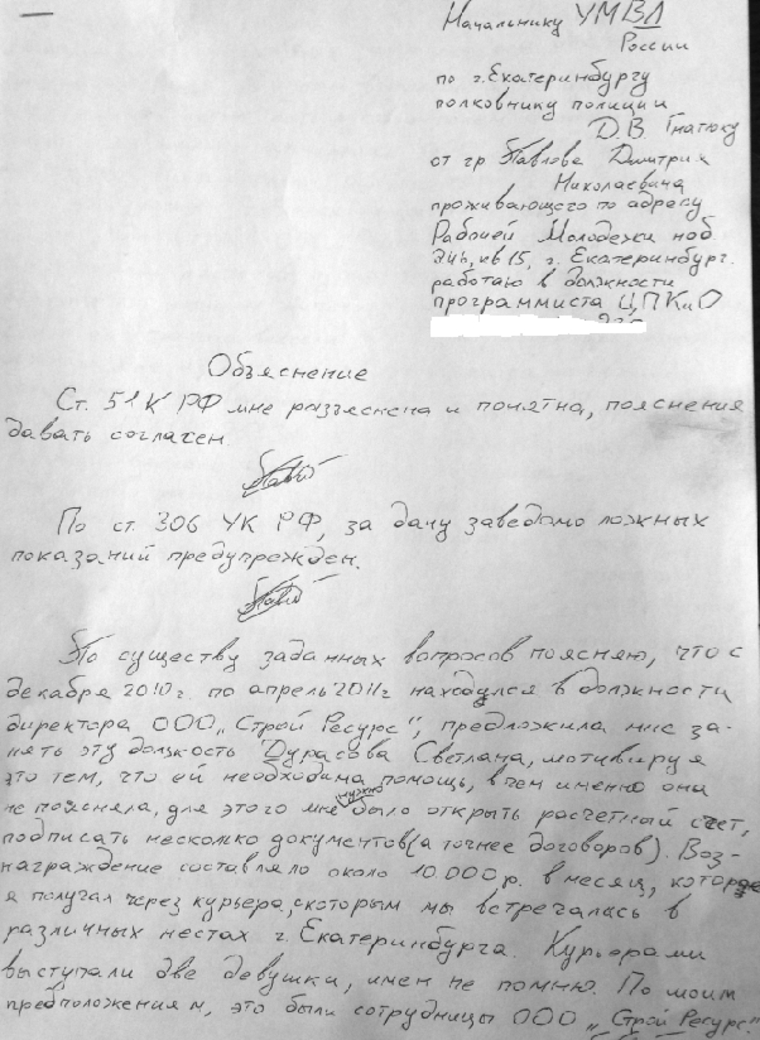 Начальнику УМВД
России
по г. Екатеринбургу
полковнику полиции
Д.В. Гнатюку
от гр Павлова Дмитрия
Николаевича
проживающего по адресу
Рабочей Молодежи наб.
кв 15, г. Екатеринбург.
работаю в должности
программиста ЦПКиО
Объяснение
Ст. 51 К РФ мне разъяснена и понятна, пояснения
давать согласен.
По ст. 306 УК РФ, за дачу заведомо ложных
показаний предупрежден.
По существу заданных вопросов поясняю, что с
декабря 2010г. по апрель 2011г находился в должности
директора ООО „Строй Ресурс", предложила мне за-
нять эту должность Дурасова Светлана, мотивируя
это тем, что ей необходима помощь, в чем именно она
не поясняла, для этого мне нужно было открыть расчетный счет,
подписать несколько документов (а точнее договоров). Воз-
награждение составляло около 10.000р. в месяц, которое
я получал через курьера, с которым мы встречалась в
различных местах г. Екатеринбурга. Курьерами
выступали две девушки, имен не помню. По моим
предположениям, это были сотрудницы ООО „Строй Ресурс"